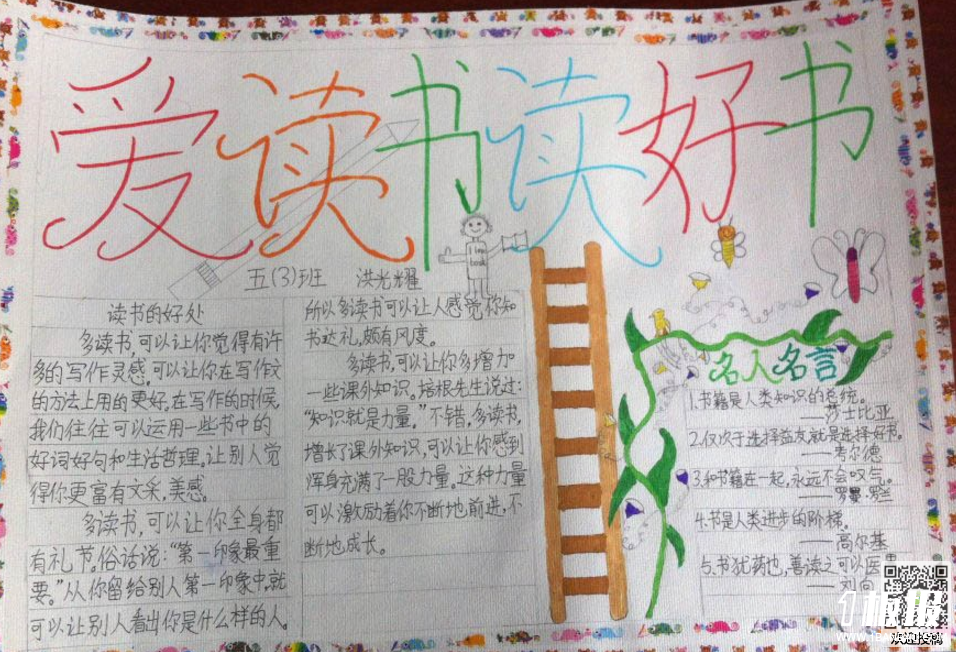 爱读书读好书
五(3)班 洪光耀
I love
book
读书的好处
多读书,可以让你觉得有许
多的写作灵感,可以让你在写作文
的方法上用的更好。在写作的时候,
我们往往可以运用一些书中的
好词好句和生活哲理。让别人觉
得你更富有文采,美感。
多读书,可以让你全身都
有礼节。俗话说:“第一印象最重
要。”从你留给别人第一印象中,就
可以让别人看出你是什么样的人。
所以多读书可以让人感觉你知
书达礼,颇有风度。
多读书,可以让你多增加
一些课外知识。培根先生说过:
“知识就是力量。”不错,多读书,
增长了课外知识,可以让你感到
浑身充满了一股力量。这种力量
可以激励着你不断地前进,不
断地成长。
名人名言
1.书籍是人类知识的总统。
——莎士比亚
2.仅次于选择益友,就是选择好书。
——考尔德
3.和书籍在一起,永远不会叹气。
——罗曼·罗兰
4.书是人类进步的阶梯。
——高尔基
5.书犹药也,善读之可以医
——刘向
板报